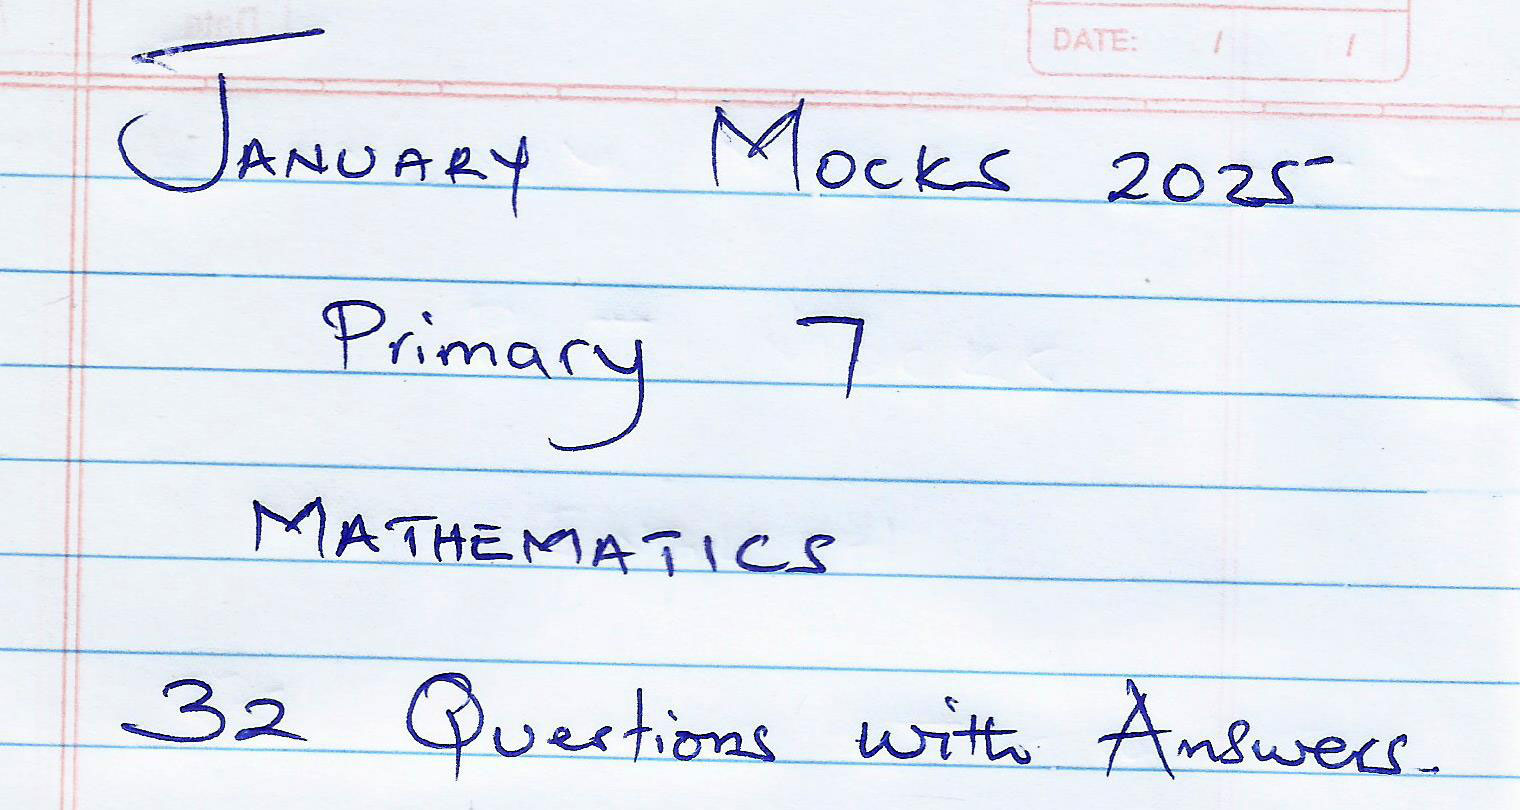 DATE: / /
JANUARY MOCKS 2025
Primary 7
MATHEMATICS
32 Questions with Answers.